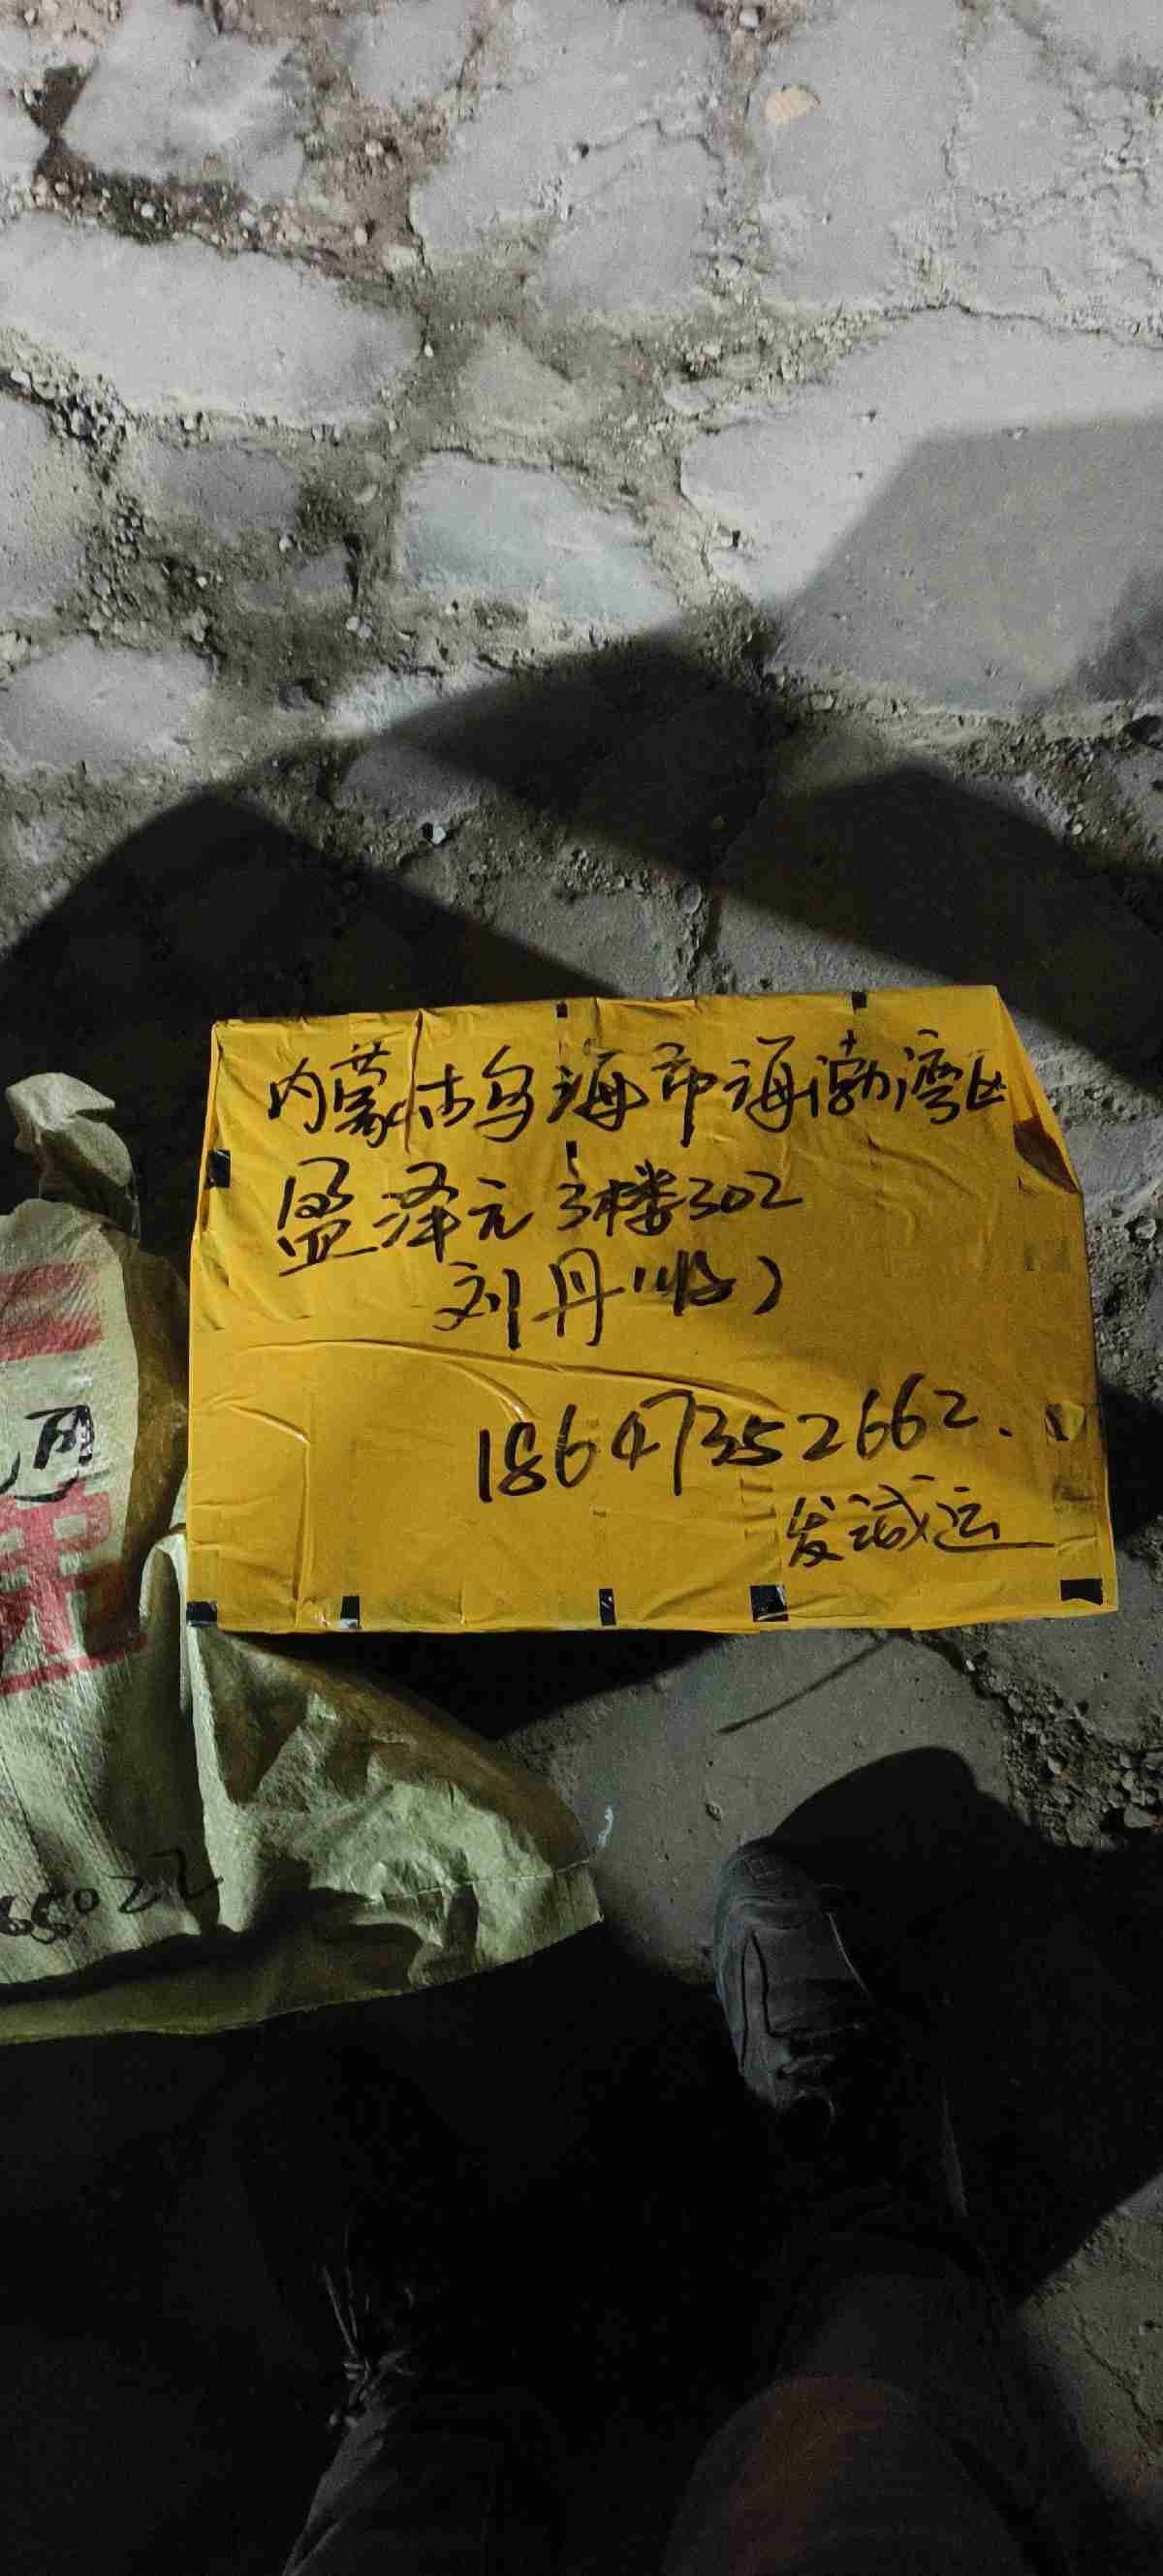 内蒙古乌海市海渤湾区
盈泽元3楼302
刘丹(收)
18647352662.
发诚运
65022